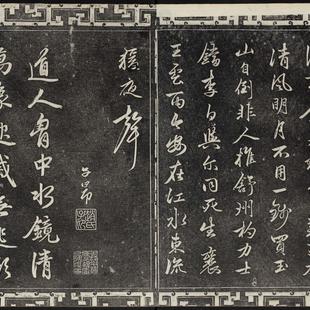 清風明月不用一錢買玉
山自倒非人推舒州杓力士
鐺李白與爾同死生襄
王雲雨今安在江水東流
猿夜
聲
子昂
道人胸中水鏡清
萬象起滅無逃形